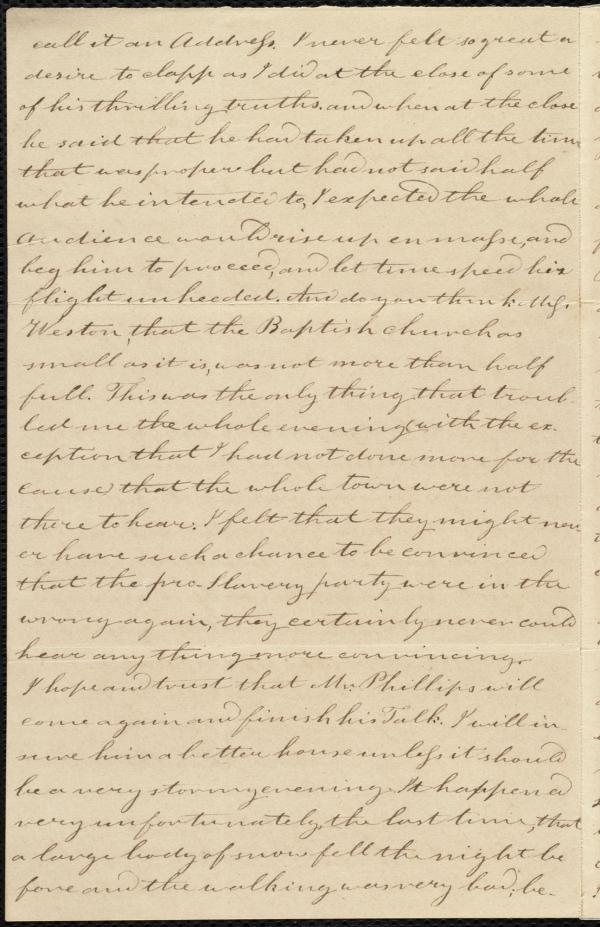 call it an Address. I never felt so great a
desire to clapp as I did at the close of some
of his thrilling truths. and when at the close
he said that he had taken up all the time
that was proper but had not said half
what he intended to, I expected the whole
audience would rise up en masse, and
beg him to proceed, and let time speed his
flight unheeded. And do you think Miss.
Weston, that the Baptish church as
small as it is, was not more than half
full. This was the only thing that troub-
led me the whole evening (with the ex-
ception that I had not done more for the
cause) that the whole town were not
there to hear. I felt that they might nev-
er have such a chance to be convinced
that the pro-Slavery party were in the
wrong again, they certainly never could
hear any thing more convincing.
I hope and trust that Mr. Phillips will
come again and finish his Talk. I will in-
sure him a better house unless it should
be a very stormy evening. It happened
very unfortunately, the last time, that
a large body of snow fell the night be
fore and the walking was very bad, be-